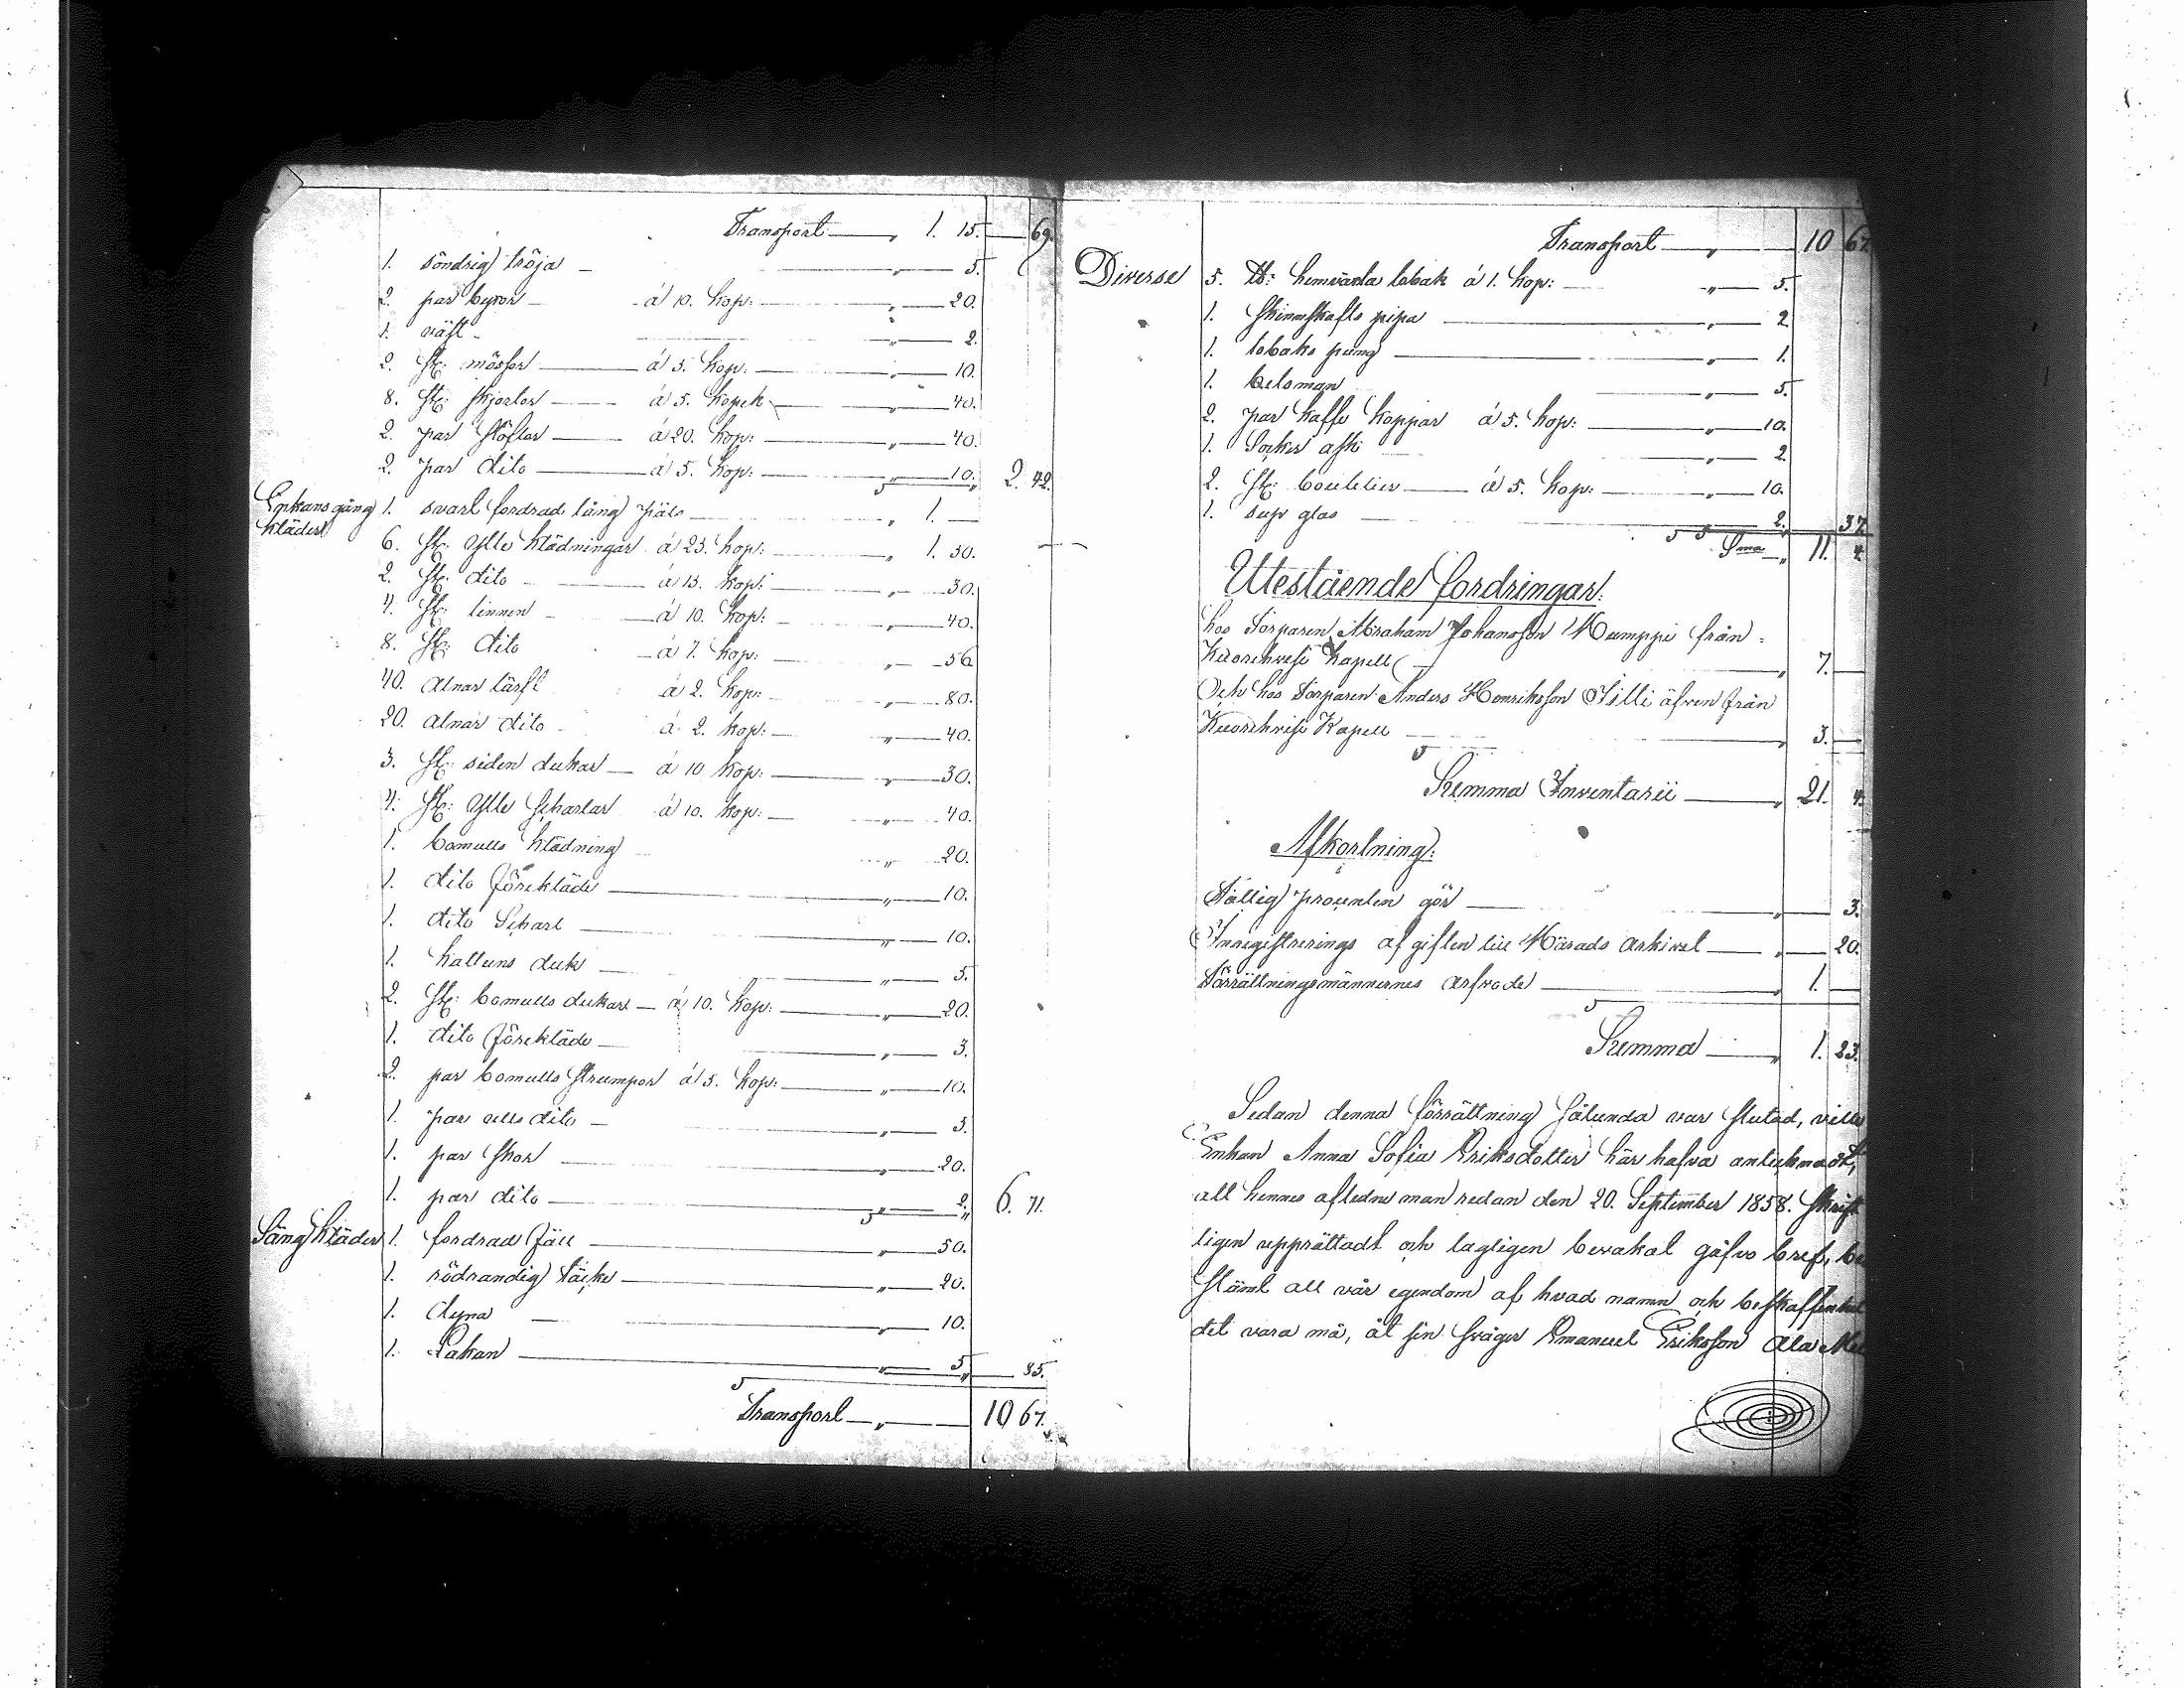 Transport „ 1. 15. — 69.
1. söndrig tröja — „ — 5.
2. par byxor — á 10. kop: — „ — 20.
1. väst — „ — 2.
2. st: mössor — á 5. kop: — „ — 10.
8. st: skjortor — á 5. kopek — „ — 40.
2. par stöflar — á 20. kop: — „ — 40.
2. par dito — á 5. kop: — „ — 10. 2. 42.
Enkans gång kläder
1. svart fordrad lång päls — „ 1. —
6. st: ylle klädningar á 25. kop: — „ 1. 50.
2. st: dito — á 15. kop: — „ — 30.
4. st: linnen — á 10. kop: — „ — 40.
8. st: dito — á 7. kop: — „ — 56.
40. alnar lärft á 2. kop: — „ — 80.
20. alnar dito á 2. kop: — „ — 40.
3. st: siden dukar — á 10 kop: — „ — 30.
4. st: ylle scharlar á 10. kop: — „ — 40.
1. bomulls klädning „ 20.
1. dito förekläde — „ — 10.
1. dito Scharl — „ — 10.
1. kattuns duk — „ — 5.
2. st: bomulls dukar — á 10. kop: — „ — 20.
1. dito förekläde — „ — 3.
2. par bomulls strumpor á 5. kop: — „ — 10.
1. par ulls dito — „ — 5.
1. par skor — „ — 20.
1. par dito — „ — 2. 6. 71.
Säng kläder 1. fordrad fäll — „ — 50.
1. rödrandig täcke — „ — 20.
1. dyna — „ — 10.
1. Lakan — „ — 5. — 85.
Transport — „ — 10 67.
Transport — „ — 10 67
Diverse 5. ℔: hemväxta tobak á 1. kop: — „ — 5.
1. skinnskafts pipa — „ — 2.
1. tobaks pung — „ — 1.
1. betsman „ — 5.
2. par kaffe koppar á 5. kop: — „ — 10.
1. Socker ask — „ — 2.
2. st: boutelier — á 5. kop: — „ — 10.
1. sup glas — „ — 2. 37.
Sma „ 11. 4
Utestående fordringar.
hos Torparen Abraham Johansson Kumppi från
Kuorehvesi Kapell — „ 7. —
Och hos Torparen Anders Henriksson Tilli äfven från
Kuorehvesi Kapell — „ 3. —
Summa Inventarii — „ 21. 4.
Afkortning.
Fattig procenten gör — „ — 3.
Inregistrerings afgiften till Härads arkivet — „ — 20.
Förrättningsmännernes arfvode — „ 1. —
Summa — „ 1. 23.
Sedan denna förrättning sålunda var slutad, ville
Enkan Anna Sofia Eriksdotter här hafva antecknadt,
att hennes aflidne man redan den 20. September 1858. skrift
ligen upprättadt och lagligen bevakat gåfvo bref, be
stämt all vår egendom af hvad namn och beskaffenhet
det vara må, åt sin svåger Emanuel Eriksson Ala